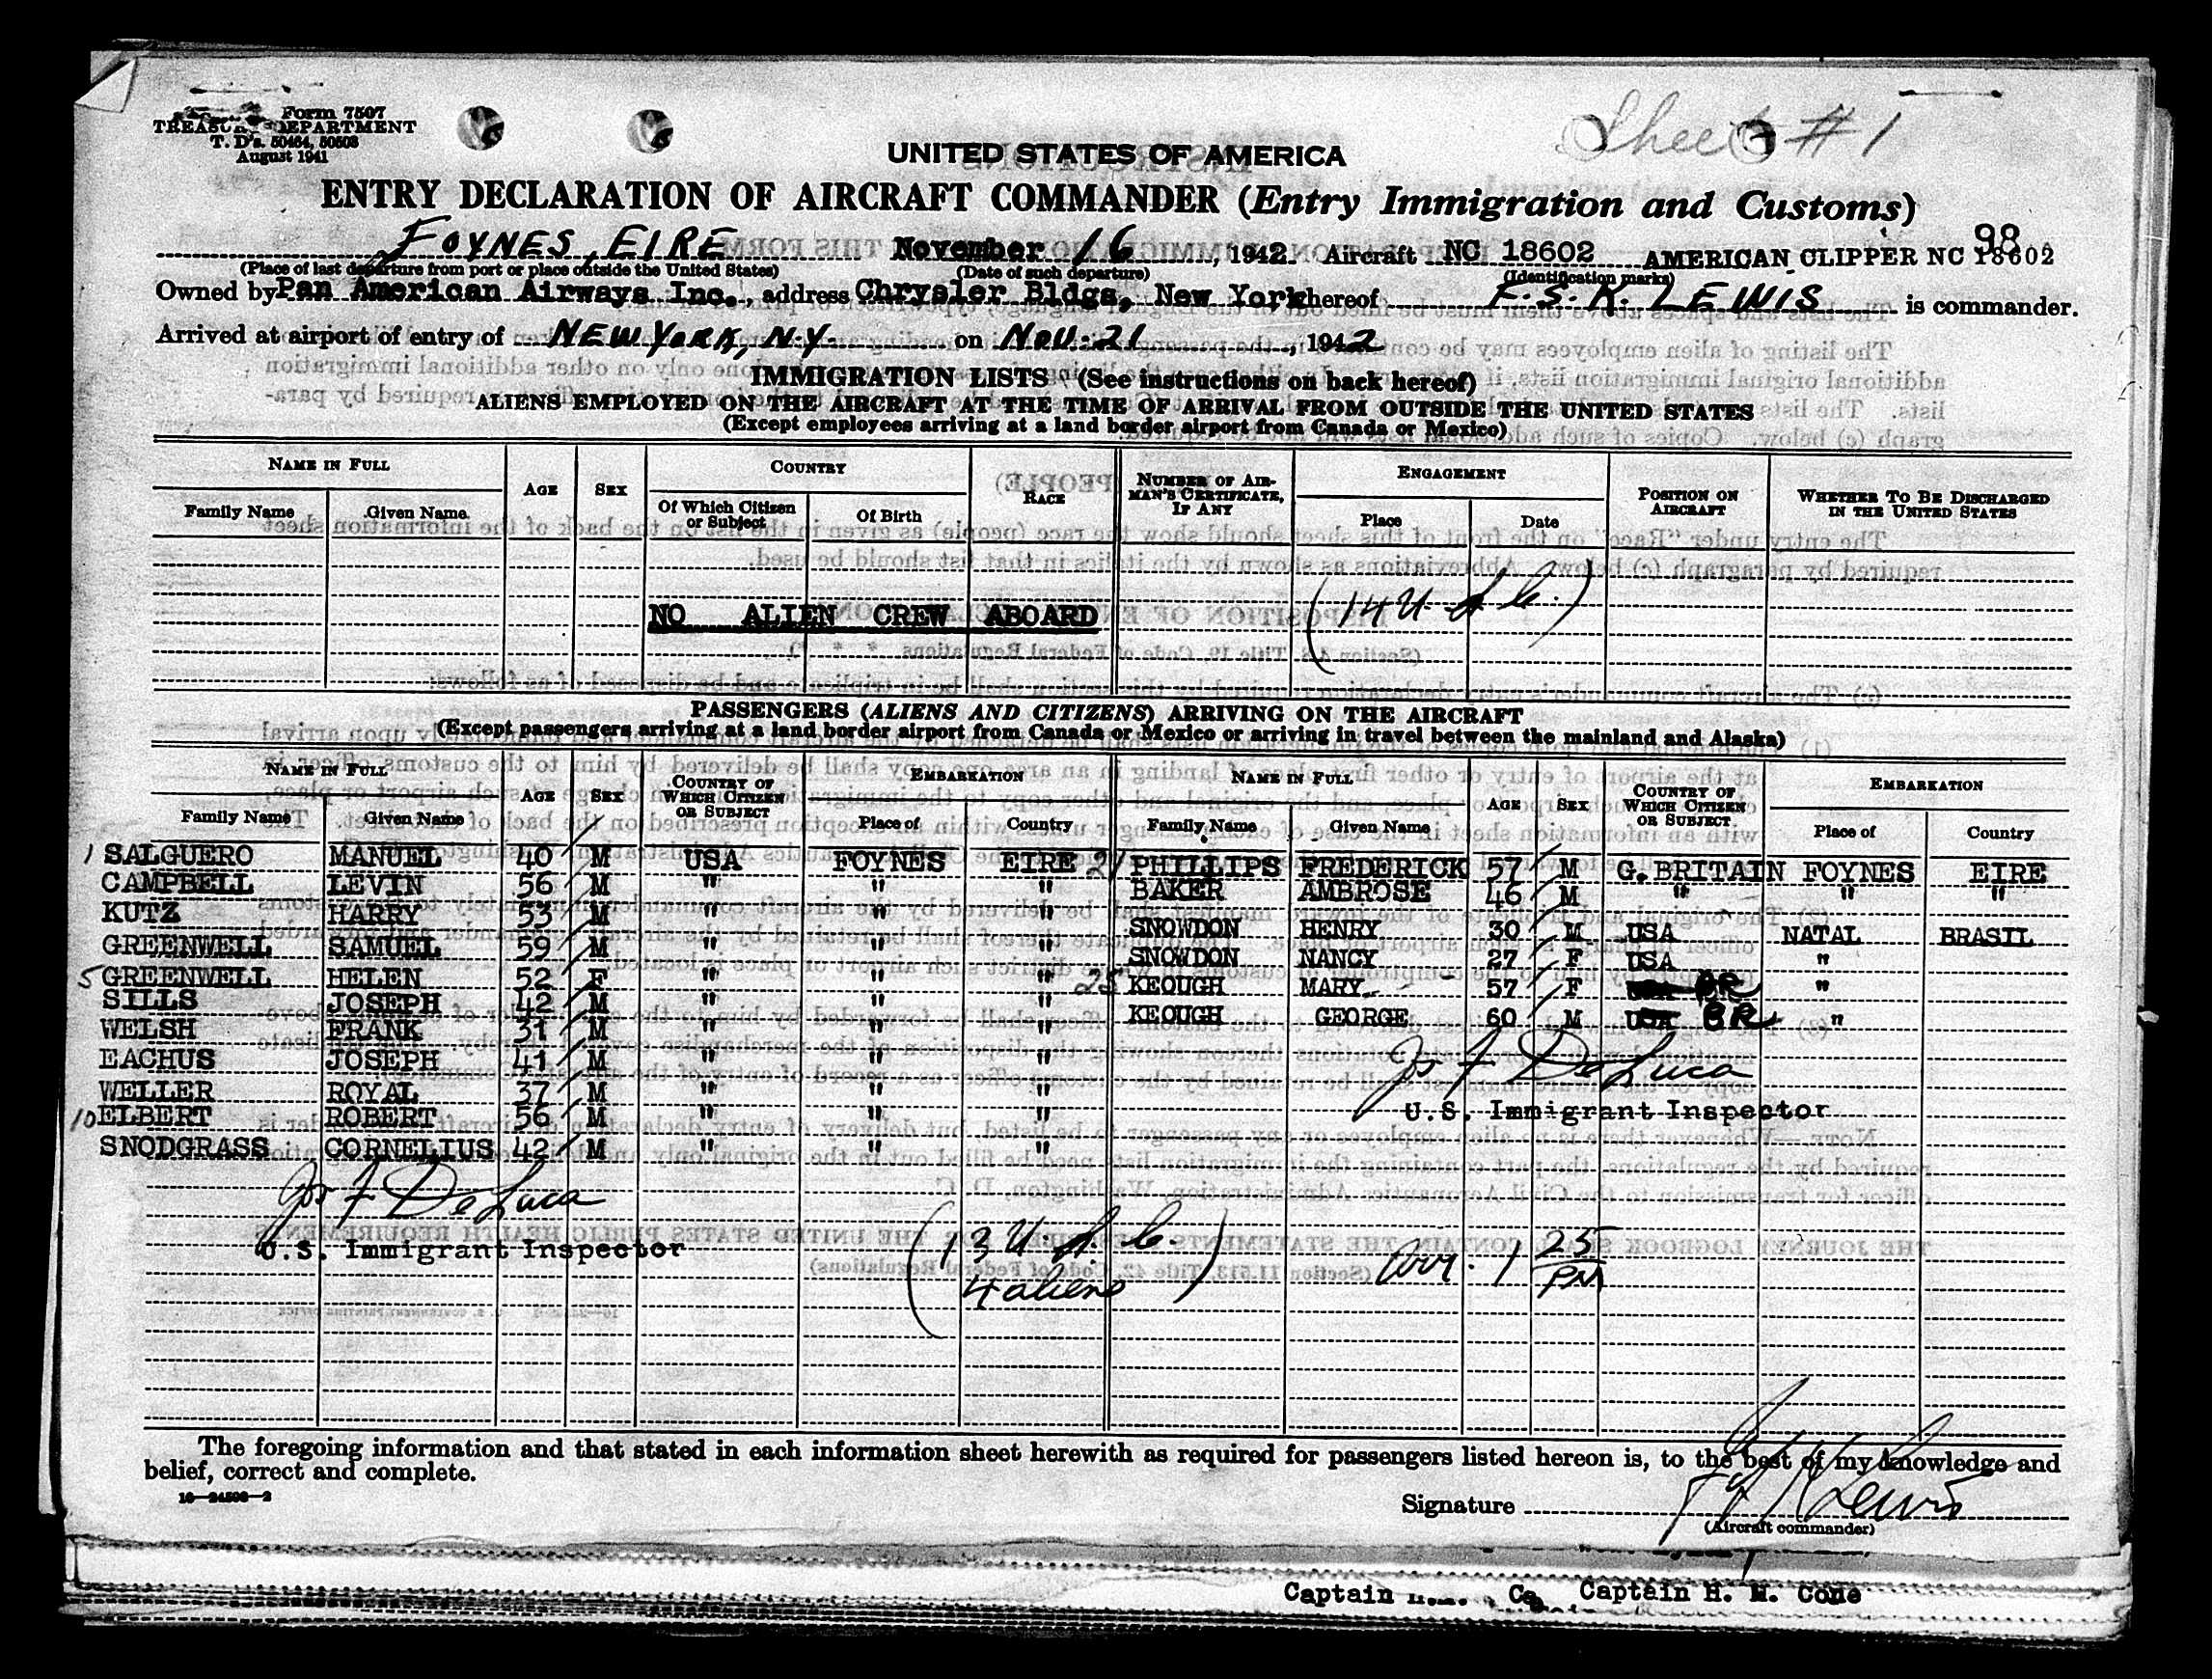 Form 7507
TREASURY DEPARTMENT
T. D's. 50464, 50503
August 1941
Sheet #1
UNITED STATES OF AMERICA
ENTRY DECLARATION OF AIRCRAFT COMMANDER (Entry Immigration and Customs)
98
FOYNES, EIRE November 16, 1942 Aircraft NC 18602 AMERICAN CLIPPER NC 18602
(Place of last departure from port or place outside the United States) (Date of such departure) (Identification marks)
Owned by Pan American Airways Inc., address Chrysler Bldg, New York hereof F. S. K. LEWIS is commander.
Arrived at airport of entry of NEW YORK, N.Y. on NOV. 21, 1942
IMMIGRATION LISTS (See instructions on back hereof)
ALIENS EMPLOYED ON THE AIRCRAFT AT THE TIME OF ARRIVAL FROM OUTSIDE THE UNITED STATES
(Except employees arriving at a land border airport from Canada or Mexico)
NAME IN FULL AGE SEX COUNTRY RACE NUMBER OF AIRMAN'S CERTIFICATE, IF ANY ENGAGEMENT POSITION ON AIRCRAFT WHETHER TO BE DISCHARGED IN THE UNITED STATES
Family Name Given Name Of Which Citizen or Subject Of Birth Place Date
NO ALIEN CREW ABOARD (14 U.S.C.)
PASSENGERS (ALIENS AND CITIZENS) ARRIVING ON THE AIRCRAFT
(Except passengers arriving at a land border airport from Canada or Mexico or arriving in travel between the mainland and Alaska)
NAME IN FULL AGE SEX COUNTRY OF WHICH CITIZEN OR SUBJECT EMBARKATION NAME IN FULL AGE SEX COUNTRY OF WHICH CITIZEN OR SUBJECT EMBARKATION
Family Name Given Name Place of Country Family Name Given Name Place of Country
1 SALGUERO MANUEL 40 M USA FOYNES EIRE 21 PHILLIPS FREDERICK 57 M G.BRITAIN FOYNES EIRE
CAMPBELL LEVIN 56 M " " " BAKER AMBROSE 46 M " " "
KUTZ HARRY 53 M " " " SNOWDON HENRY 30 M USA NATAL BRASIL
GREENWELL SAMUEL 59 M " " " SNOWDON NANCY 27 F USA "
5 GREENWELL HELEN 52 F " " " 25 KEOUGH MARY 57 F BR "
SILLS JOSEPH 42 M " " " KEOUGH GEORGE 60 M USA BR "
WELSH FRANK 31 M " " "
EACHUS JOSEPH 41 M " " " Jos F DeLuca
WELLER ROYAL 37 M " " "
10 ELBERT ROBERT 56 M " " " U.S. Immigrant Inspector
SNODGRASS CORNELIUS 42 M " " "
Jos F DeLuca
U.S. Immigrant Inspector
(13 U.S.C.
4 aliens)
Arr. 1 25 PM
The foregoing information and that stated in each information sheet herewith as required for passengers listed hereon is, to the best of my knowledge and
belief, correct and complete.
16—24508—2
Signature F S K Lewis
(Aircraft commander)
Captain Captain H. M. Cone